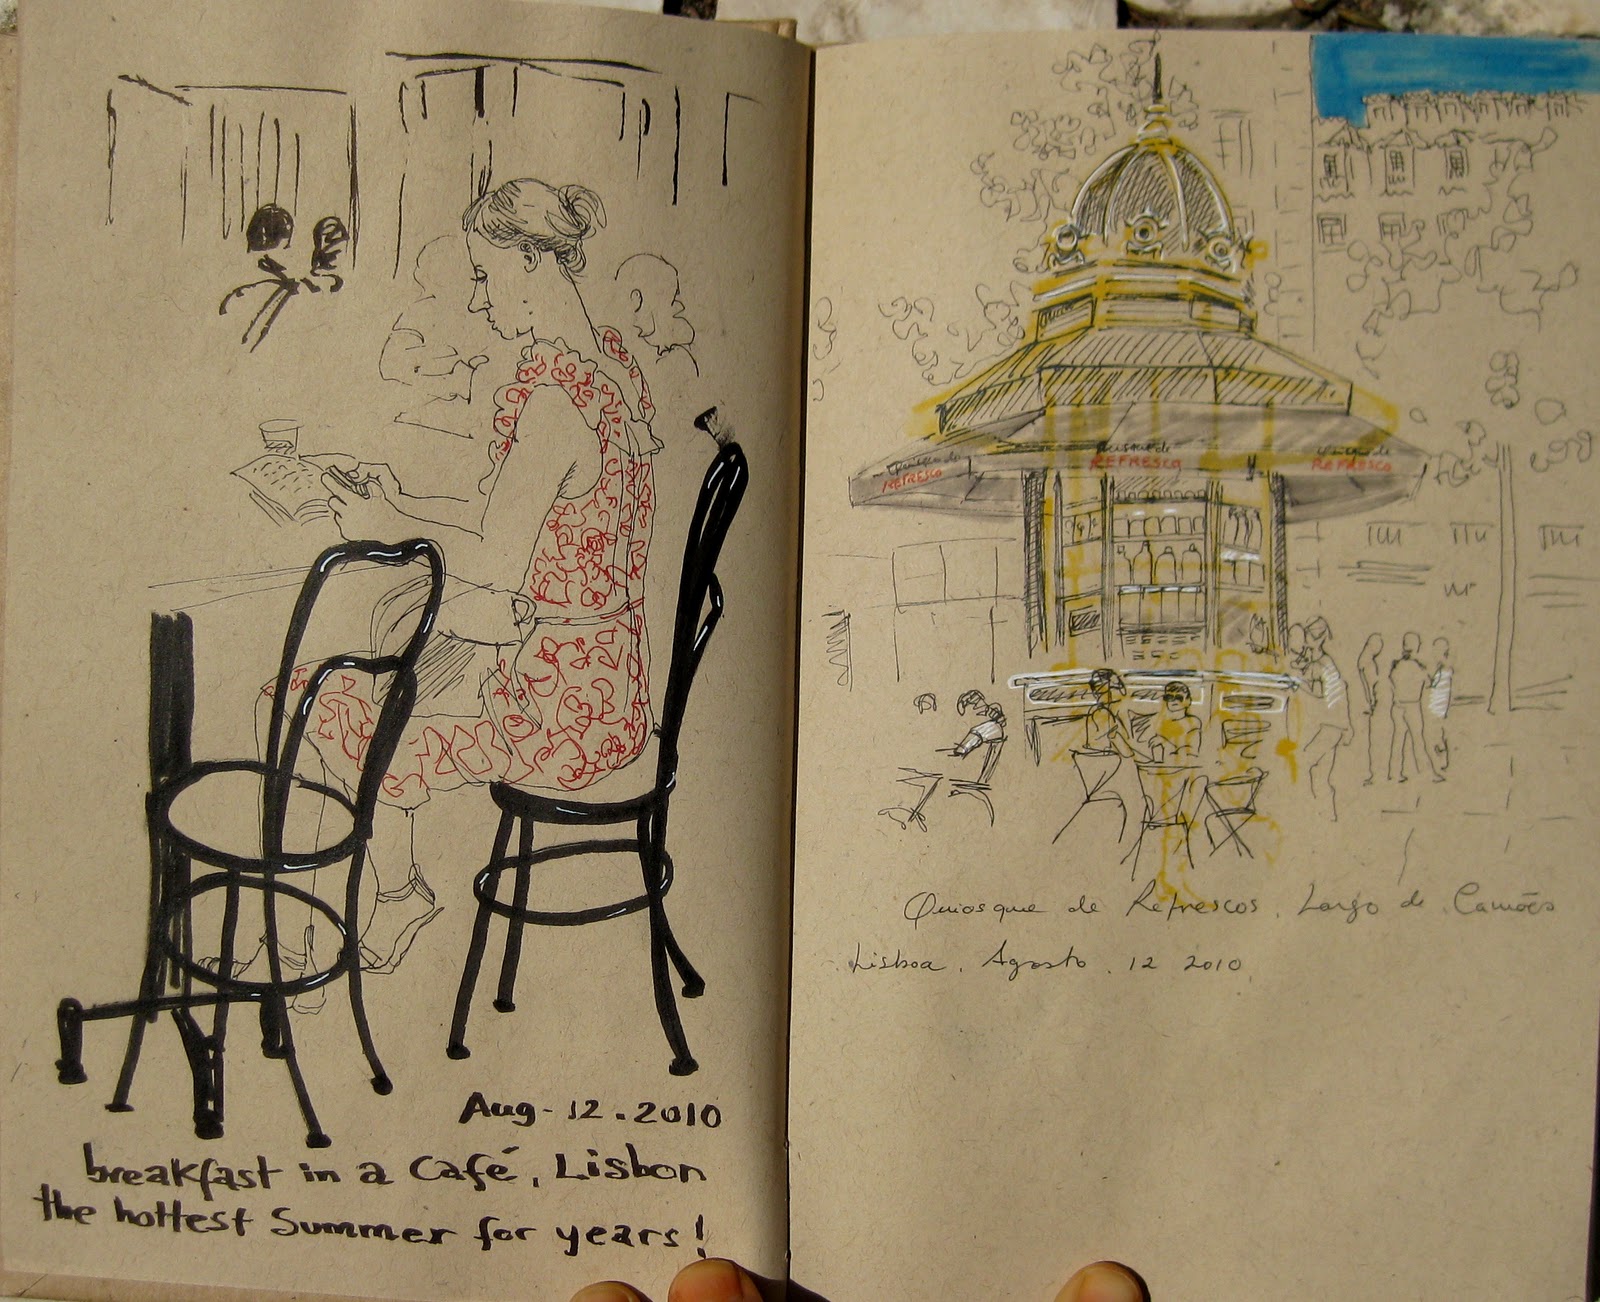 Aug-12.2010
breakfast in a Café, Lisbon
the hottest Summer for years!
Quiosque de
REFRESCO
Quiosque de
REFRESCO
Quiosque de
REFRESCO
Quiosque de Refrescos. Largo de Camões
Lisboa. Agosto. 12 2010